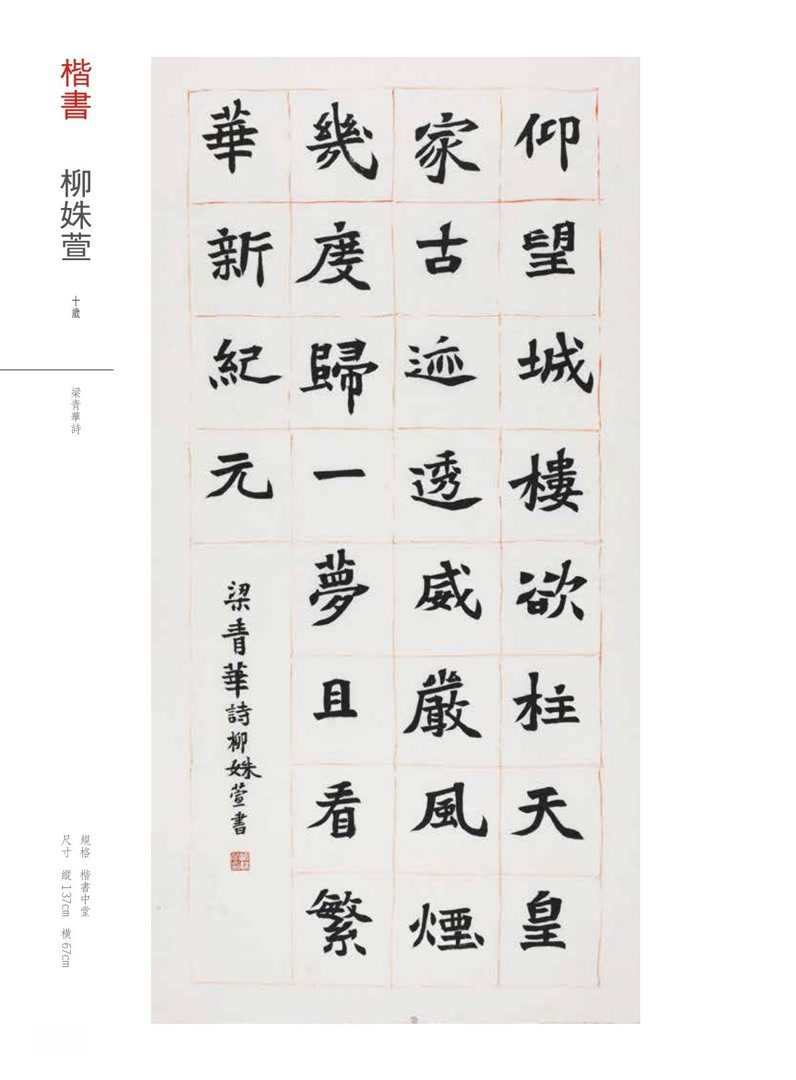 楷書 柳姝萱
十歲
梁青華詩
規格 楷書中堂
尺寸 縱137cm 橫67cm
仰望城樓欲柱天皇
家古迹透威嚴風煙
幾度歸一夢且看繁
華新紀元
梁青華詩柳姝萱書